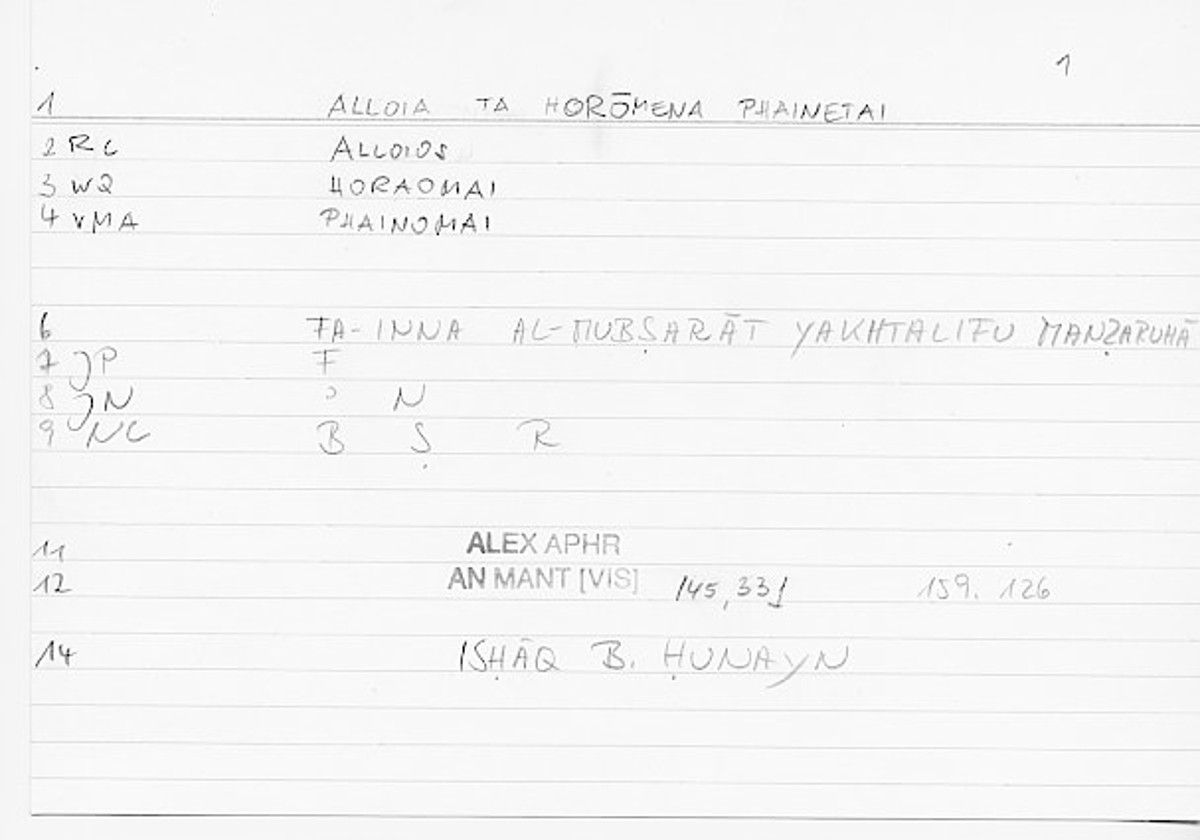 1
1 ALLOIA TA HORŌMENA PHAINETAI
2 RC ALLOIOS
3 WQ HORAOMAI
4 VMA PHAINOMAI
6 FA-INNA AL-MUBṢARĀT YAKHTALIFU MANẒARUHĀ
7 JP F
8 JN ʾ N
9 NC B Ṣ R
11 ALEX APHR
12 AN MANT [VIS] 145,33 159. 126
14 ISḤĀQ B. ḤUNAYN